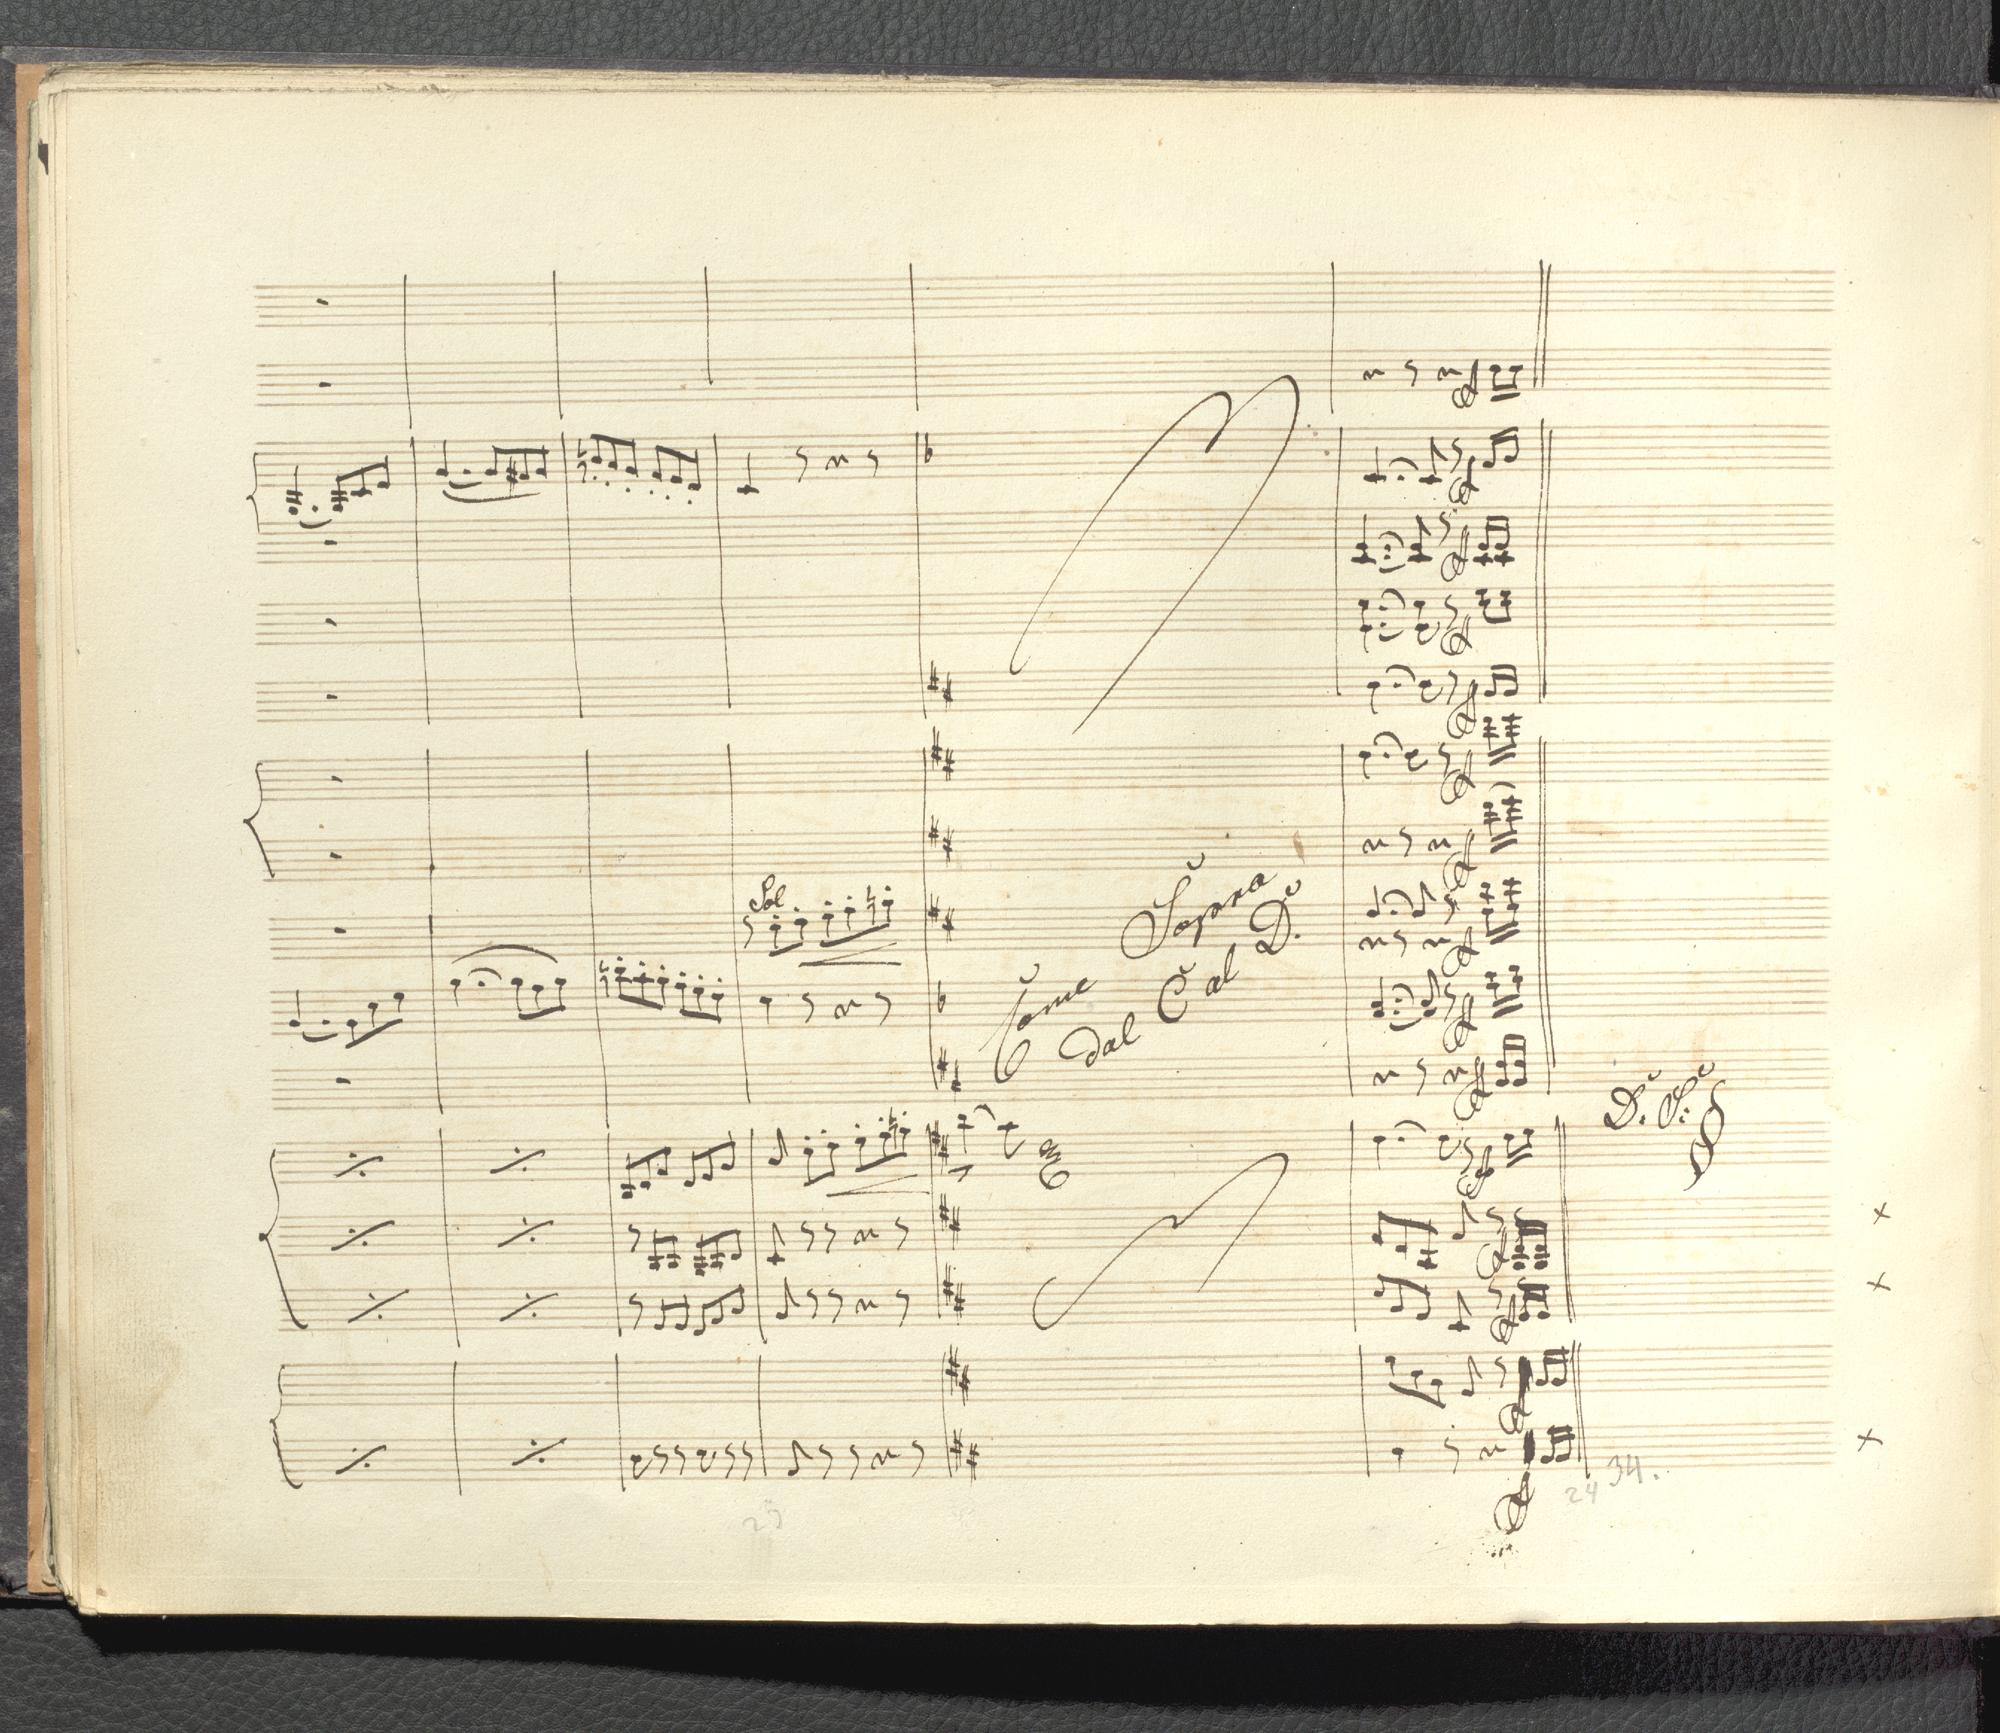 Sol
Come Sopra
dal C al D.
D. S.
34.
24
25